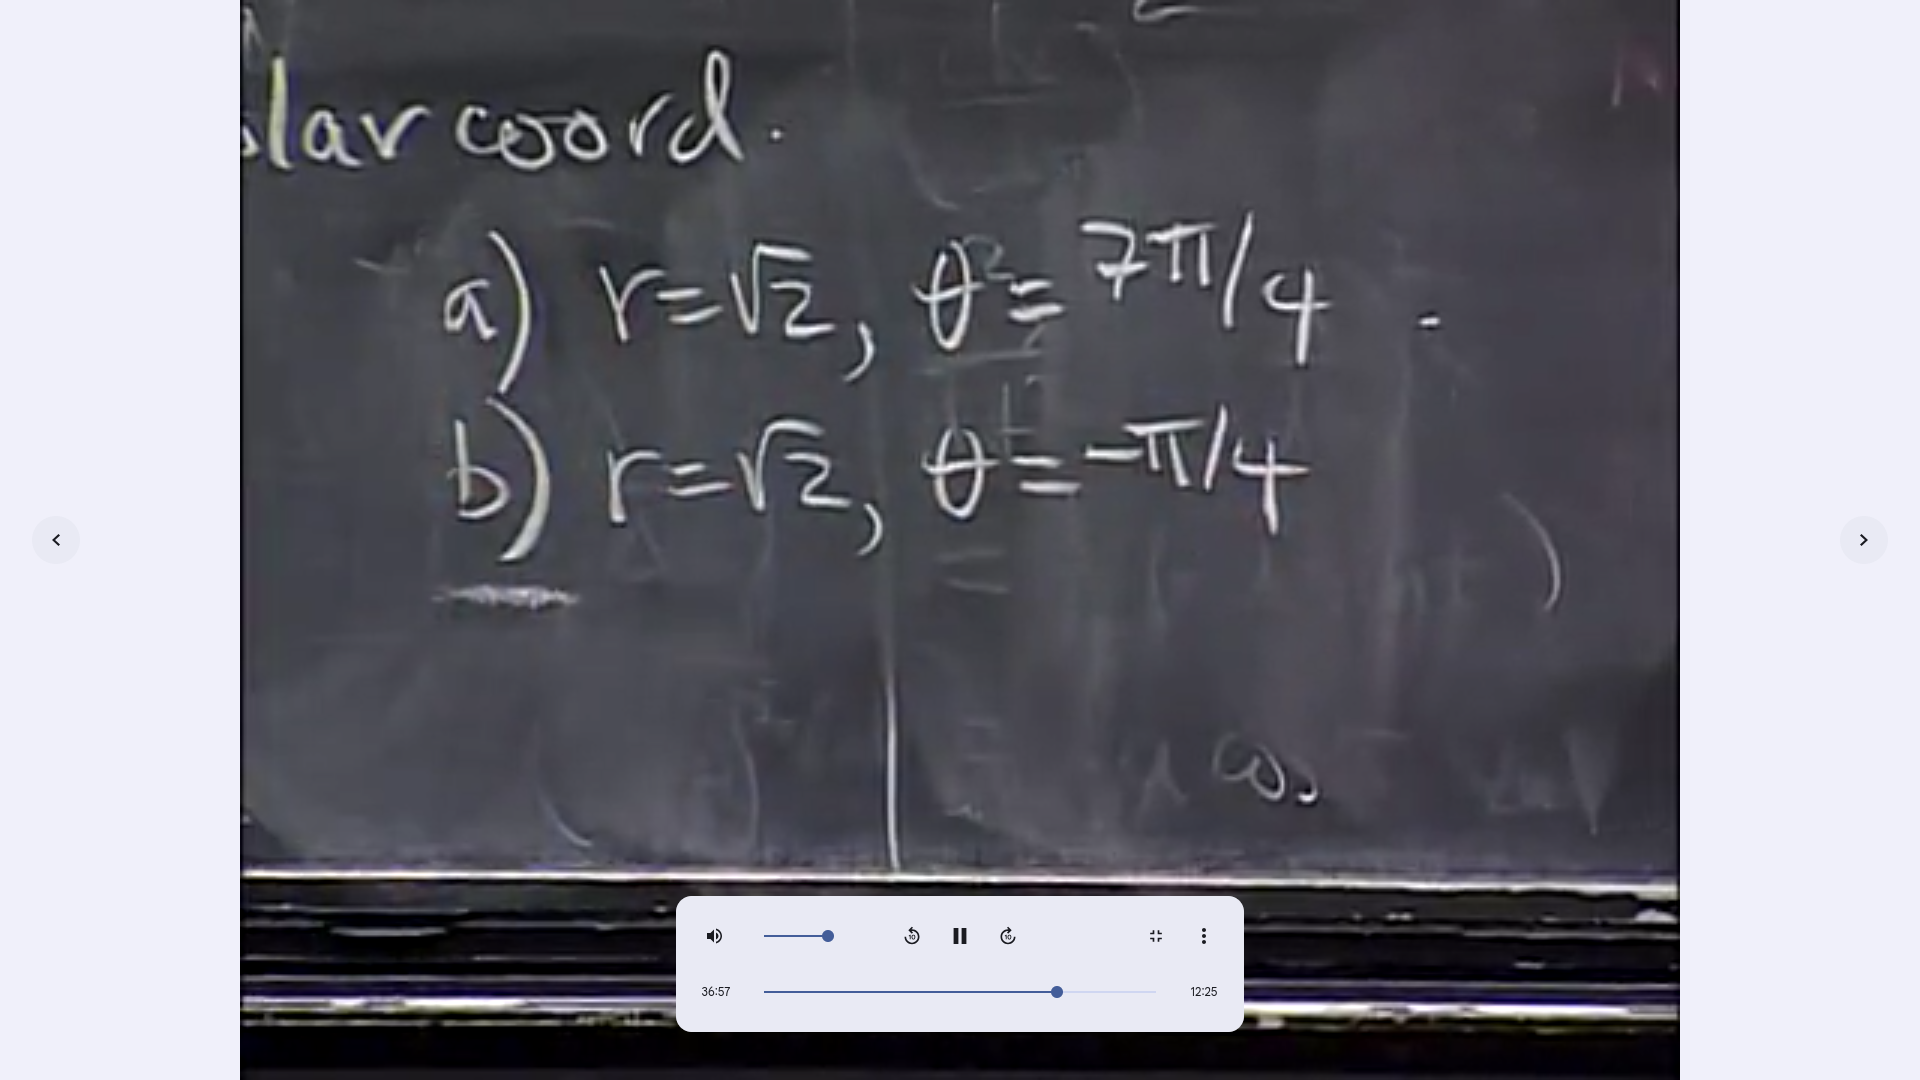 lar coord.
a) r=√2, θ=7π/4 .
b) r=√2, θ=-π/4
36:57
12:25